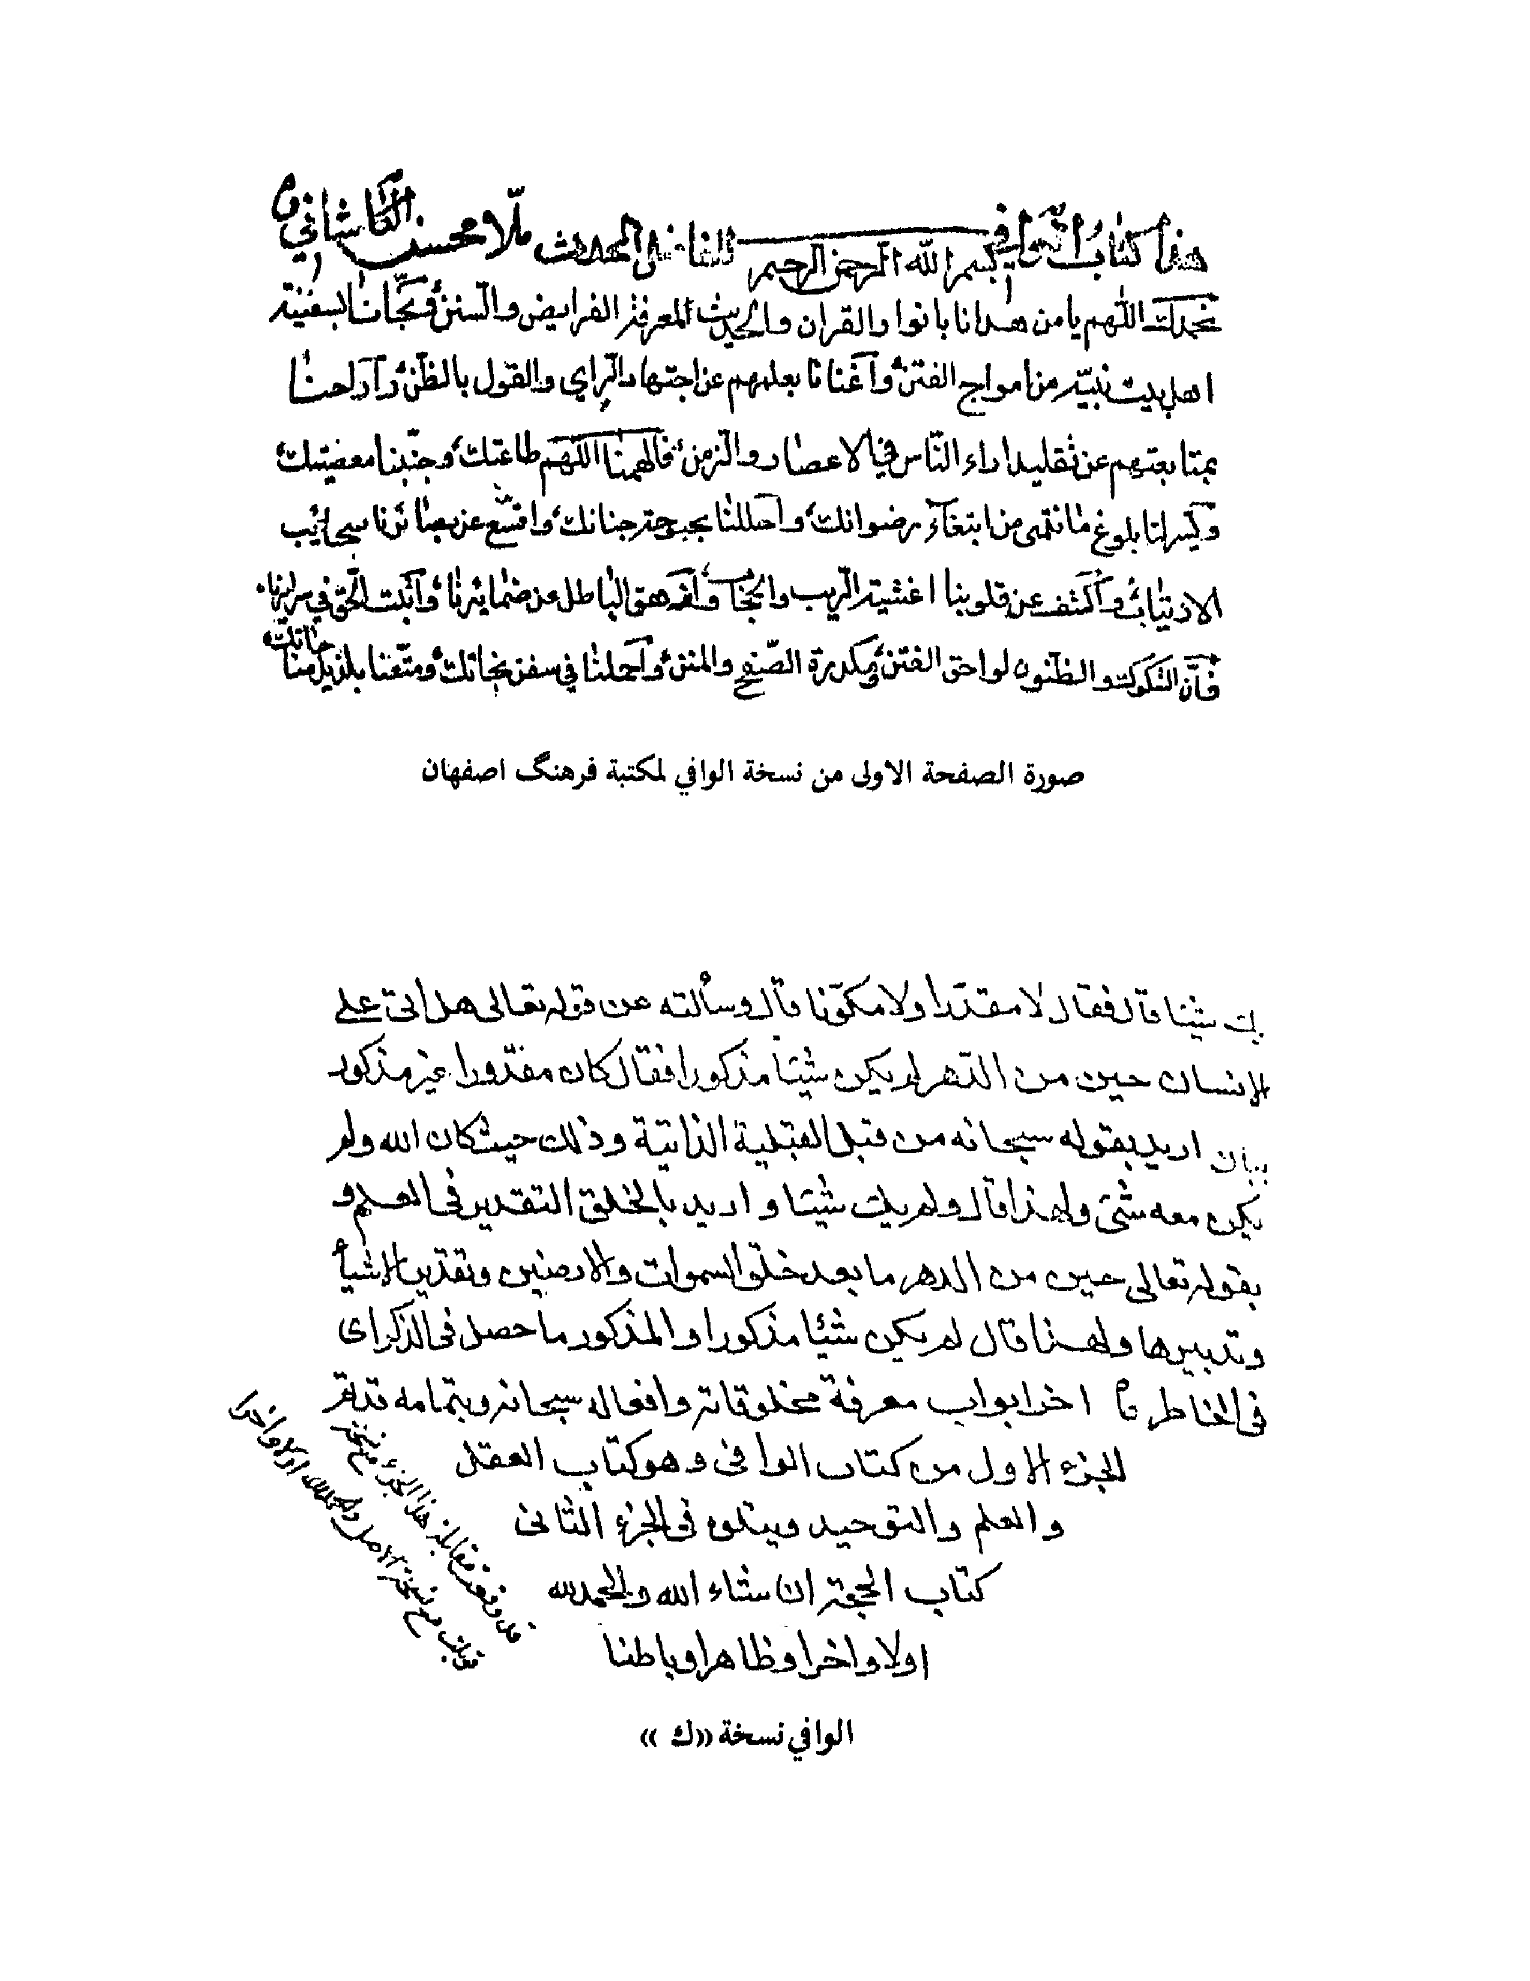 هذا كتاب الوافي للفاضل المحدث ملا محسن الكاشاني ره
بسم الله الرحمن الرحيم
نحمدك اللهم يا من هدانا بانوار القران والحديث لمعرفة الفرايض والسنن ونجّانا بسفينة
اهل بيت نبيّه من امواج الفتن وأغنانا بعلمهم عن اجتهاد الراي والقول بالظن وأراحنا
بمتابعتهم عن تقليد اراء الناس في الاعصار والزمن فالهمنا اللهم طاعتك وجنّبنا معصيتك
ويسّر لنا بلوغ ما نتمنى من ابتغاء رضوانك وأحللنا بحبوحة جنانك واقشع عن بصائرنا سحائب
الارتياب وأكشف عن قلوبنا اغشية الريب والحجاب وأزهق الباطل عن ضمايرنا وأثبت الحق في سرايرنا
فانّ الشكوك والظنون لواحق الفتن ومكدرة الصفح والمنن وأحملنا في سفن نجاتك ومتّعنا بلذيذ مناجاتك
صورة الصفحة الاولى من نسخة الوافي لمكتبة فرهنگ اصفهان
يك شيئا قال فقال لا مقدّرا ولا مكوّنا قال وسألته عن قوله تعالى هل اتى على
الانسان حين من الدهر لم يكن شيئا مذكورا فقال كان مقدّورا غير مذكور
بيان اريد بقوله سبحانه من قبل القبلية الذاتية وذلك حيث كان الله ولم
يكن معه شئ ولهذا قال ولم يك شيئا واريد بالخلق التقدير في العلم و
بقوله تعالى حين من الدهر ما بعد خلق السموات والارضين وتقدير الاشيأ
وتدبيرها ولهذا قال لم يكن شيئا مذكورا والمذكور ما حصل في الذكر اى
في الخاطر اخر ابواب معرفة مخلوقاته وافعاله سبحانه وبتمامه قد تم
الجزء الاول من كتاب الوافى وهو كتاب العقل
والعلم والتوحيد ويتلوه فى الجزء الثانى
كتاب الحجة ان شاء الله والحمد لله
اولا واخرا وظاهرا وباطنا
قد وقعت مقابلة هذا الجزء مع نسخة
قوبلت مع نسخة الاصل والحمد لله اولا واخرا
الوافي نسخة «ك»